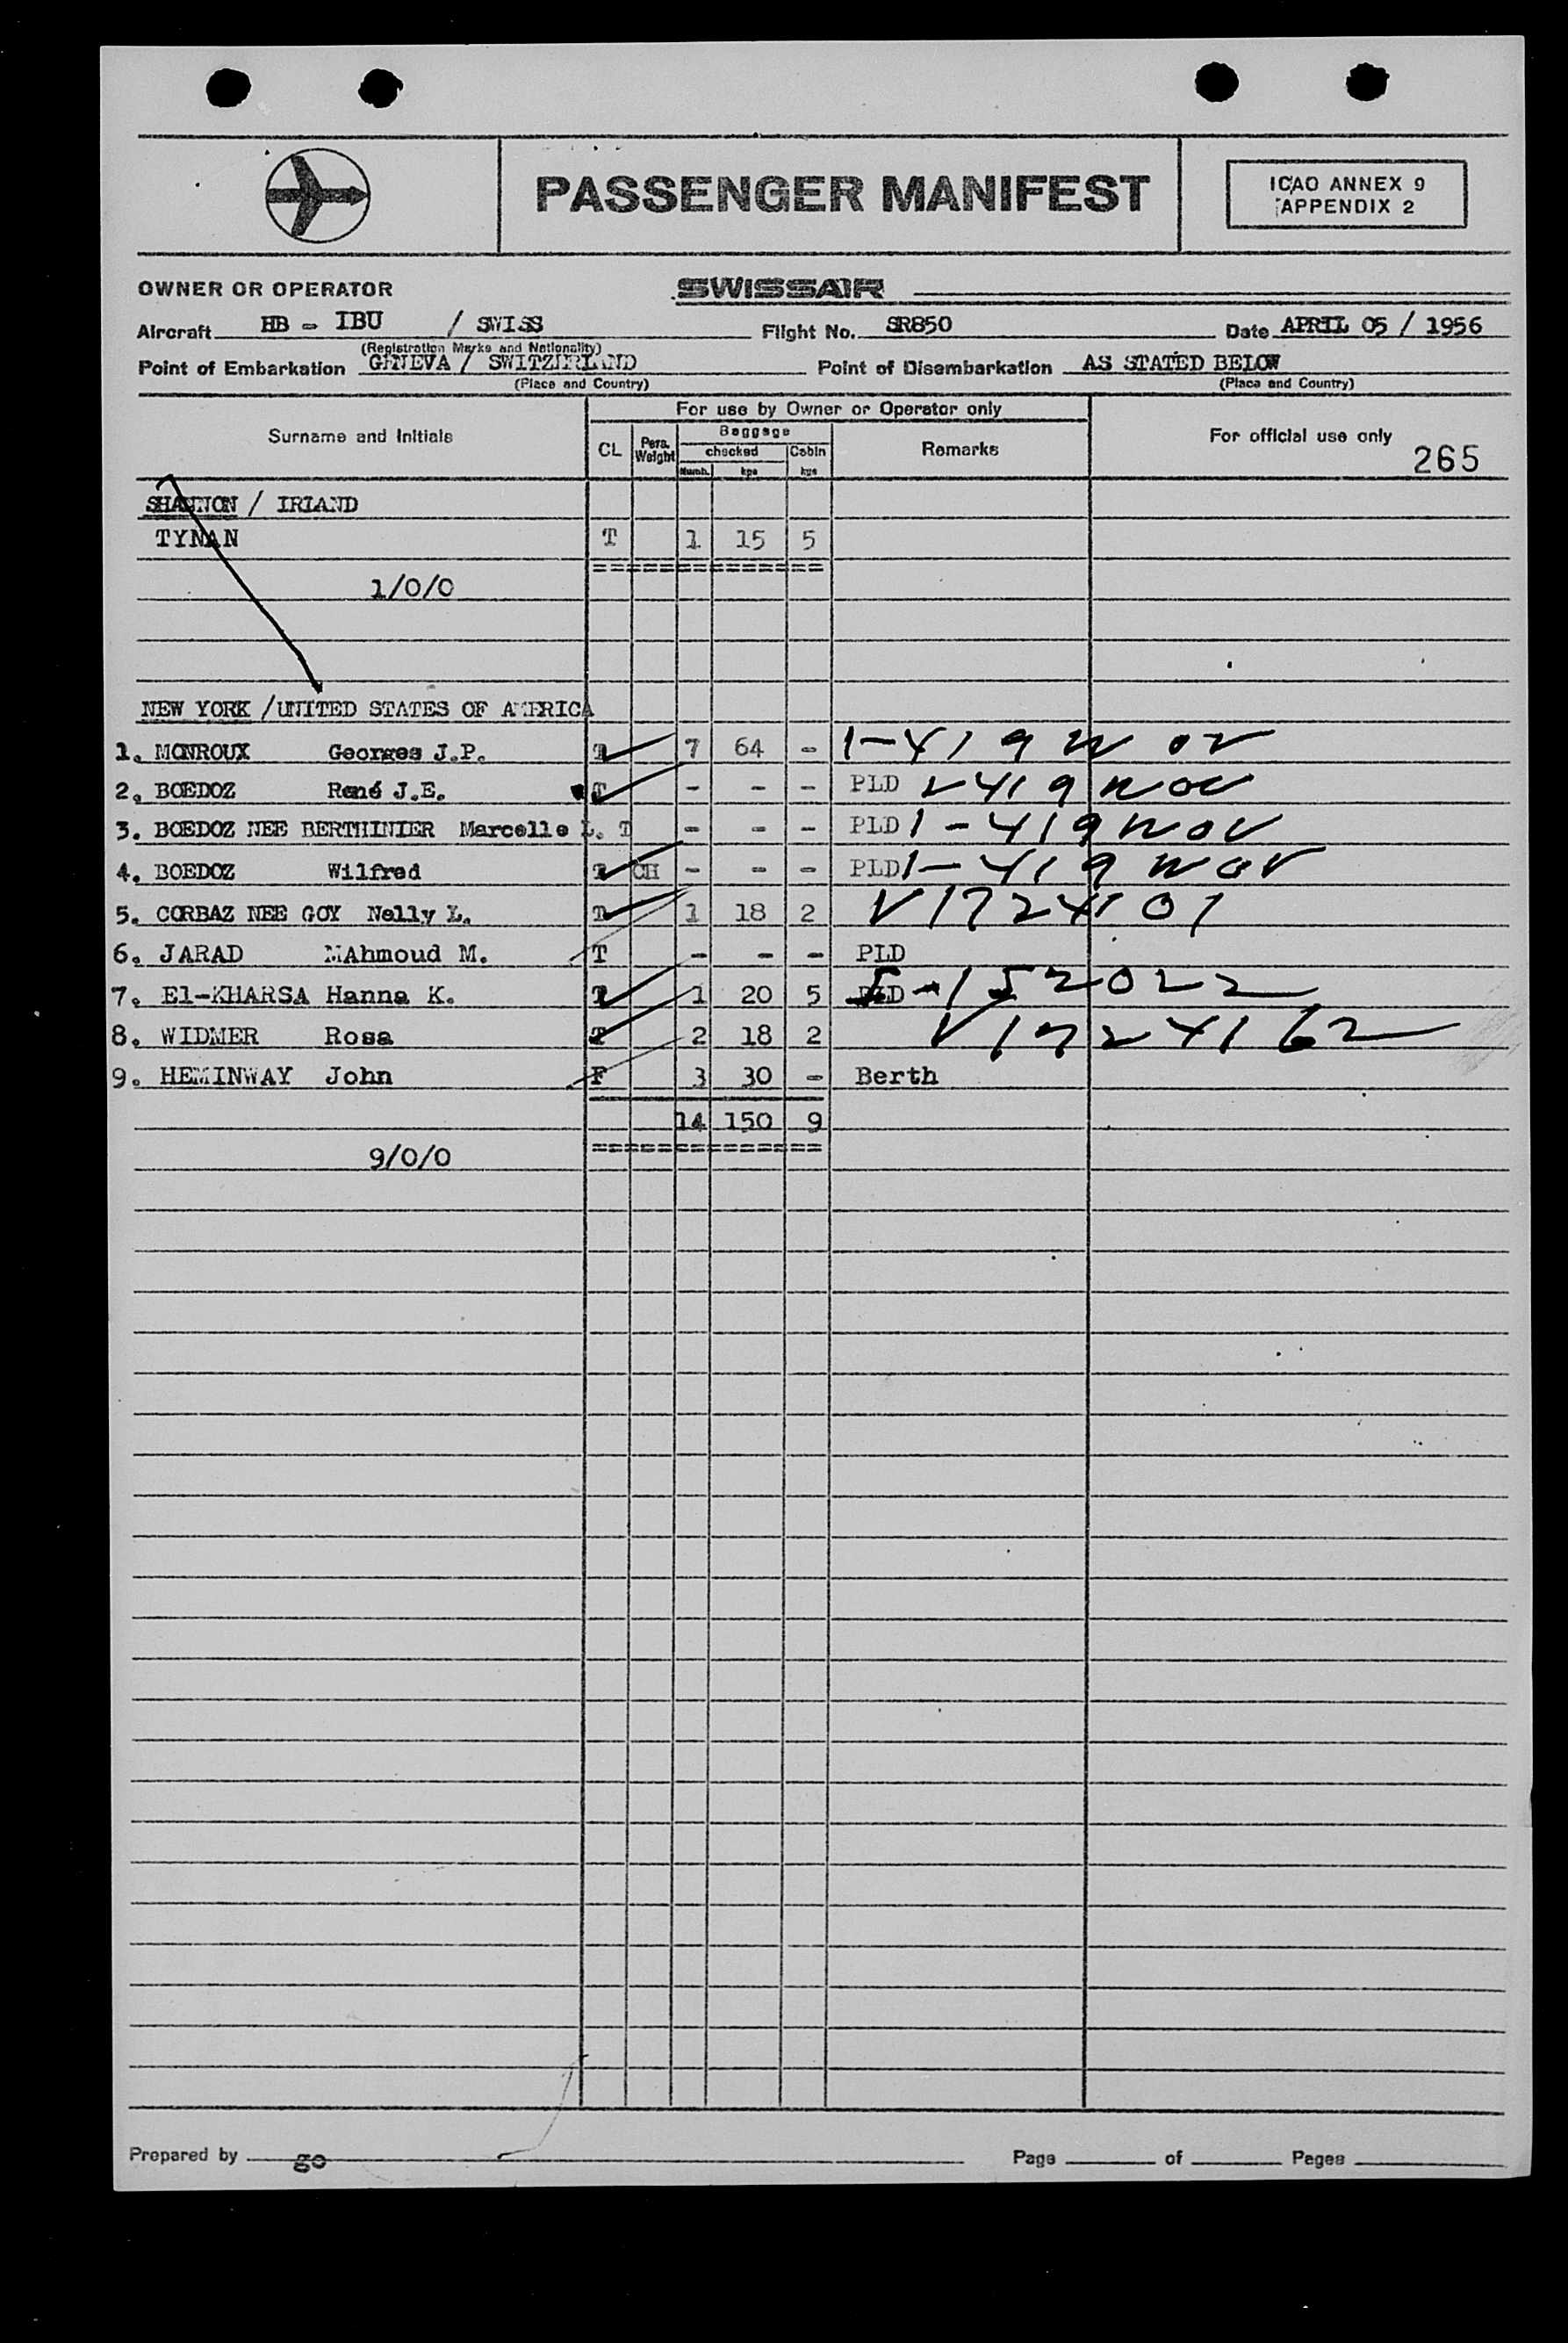 PASSENGER MANIFEST
ICAO ANNEX 9
APPENDIX 2
OWNER OR OPERATOR SWISSAIR
Aircraft HB - IBU / SWISS Flight No. SR850 Date APRIL 05 / 1956
(Registration Marks and Nationality)
Point of Embarkation GENEVA / SWITZERLAND Point of Disembarkation AS STATED BELOW
(Place and Country) (Place and Country)
For use by Owner or Operator only
Surname and Initials CL Pers. Weight Baggage Remarks For official use only
checked Cabin
Numb. kgs kgs
265
SHANNON / IRLAND
TYNAN T 1 15 5
=============
1/0/0
NEW YORK /UNITED STATES OF AMERICA
1. MONROUX Georges J.P. T 7 64 - 1-419 NOV
2. BOEDOZ René J.E. T - - - PLD 1-419 NOV
3. BOEDOZ NEE BERTHINIER Marcelle L. T - - - PLD 1-419 NOV
4. BOEDOZ Wilfred T CH - - - PLD 1-419 NOV
5. CORBAZ NEE GOY Nelly L. T 1 18 2 V1724101
6. JARAD MAhmoud M. T - - - PLD
7. El-KHARSA Hanna K. T 1 20 5 PLD -152022
8. WIDMER Rosa T 2 18 2 V1724162
9. HEMINWAY John F 3 30 - Berth
14 150 9
=============
9/0/0
Prepared by go Page of Pages